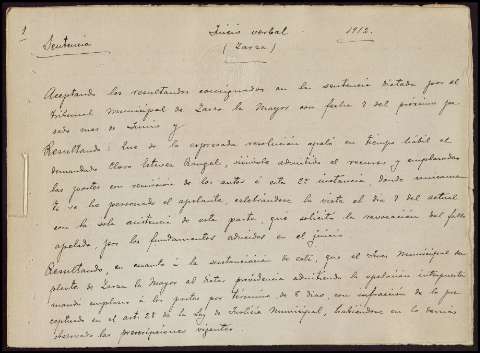 1
Juicio verbal 1912.
Sentencia (Zarza)
Aceptando los resultandos consignados en la sentencia dictada por el
Tribunal municipal de Zarza la Mayor con fecha 7 del próximo pa-
sado mes de Junio y
Resultando: Que de la expresada resolución apeló en tiempo hábil el
demandado Claro Estevez Rángel, siéndole admitido el recurso, y emplazadas
las partes con remisión de los autos á esta 2ª instancia, donde unicamen-
te se ha personado el apelante, celebrándose la vista el dia 7 del actual
con la sola asistencia de esta parte, que solicitó la revocación del fallo
apelado, por los fundamentos aducidos en el juicio
Resultando, en cuanto á la sustanciación de esta, que el Juez municipal su-
plente de Zarza la Mayor al dictar providencia admitiendo la apelación interpuesta
mandó emplazar á las partes por término de 8 dias, con infracción de lo pre-
ceptuado en el art. 28 de la Ley de Justicia Municipal, habiéndose en lo demas
observado las prescripciones vigentes.